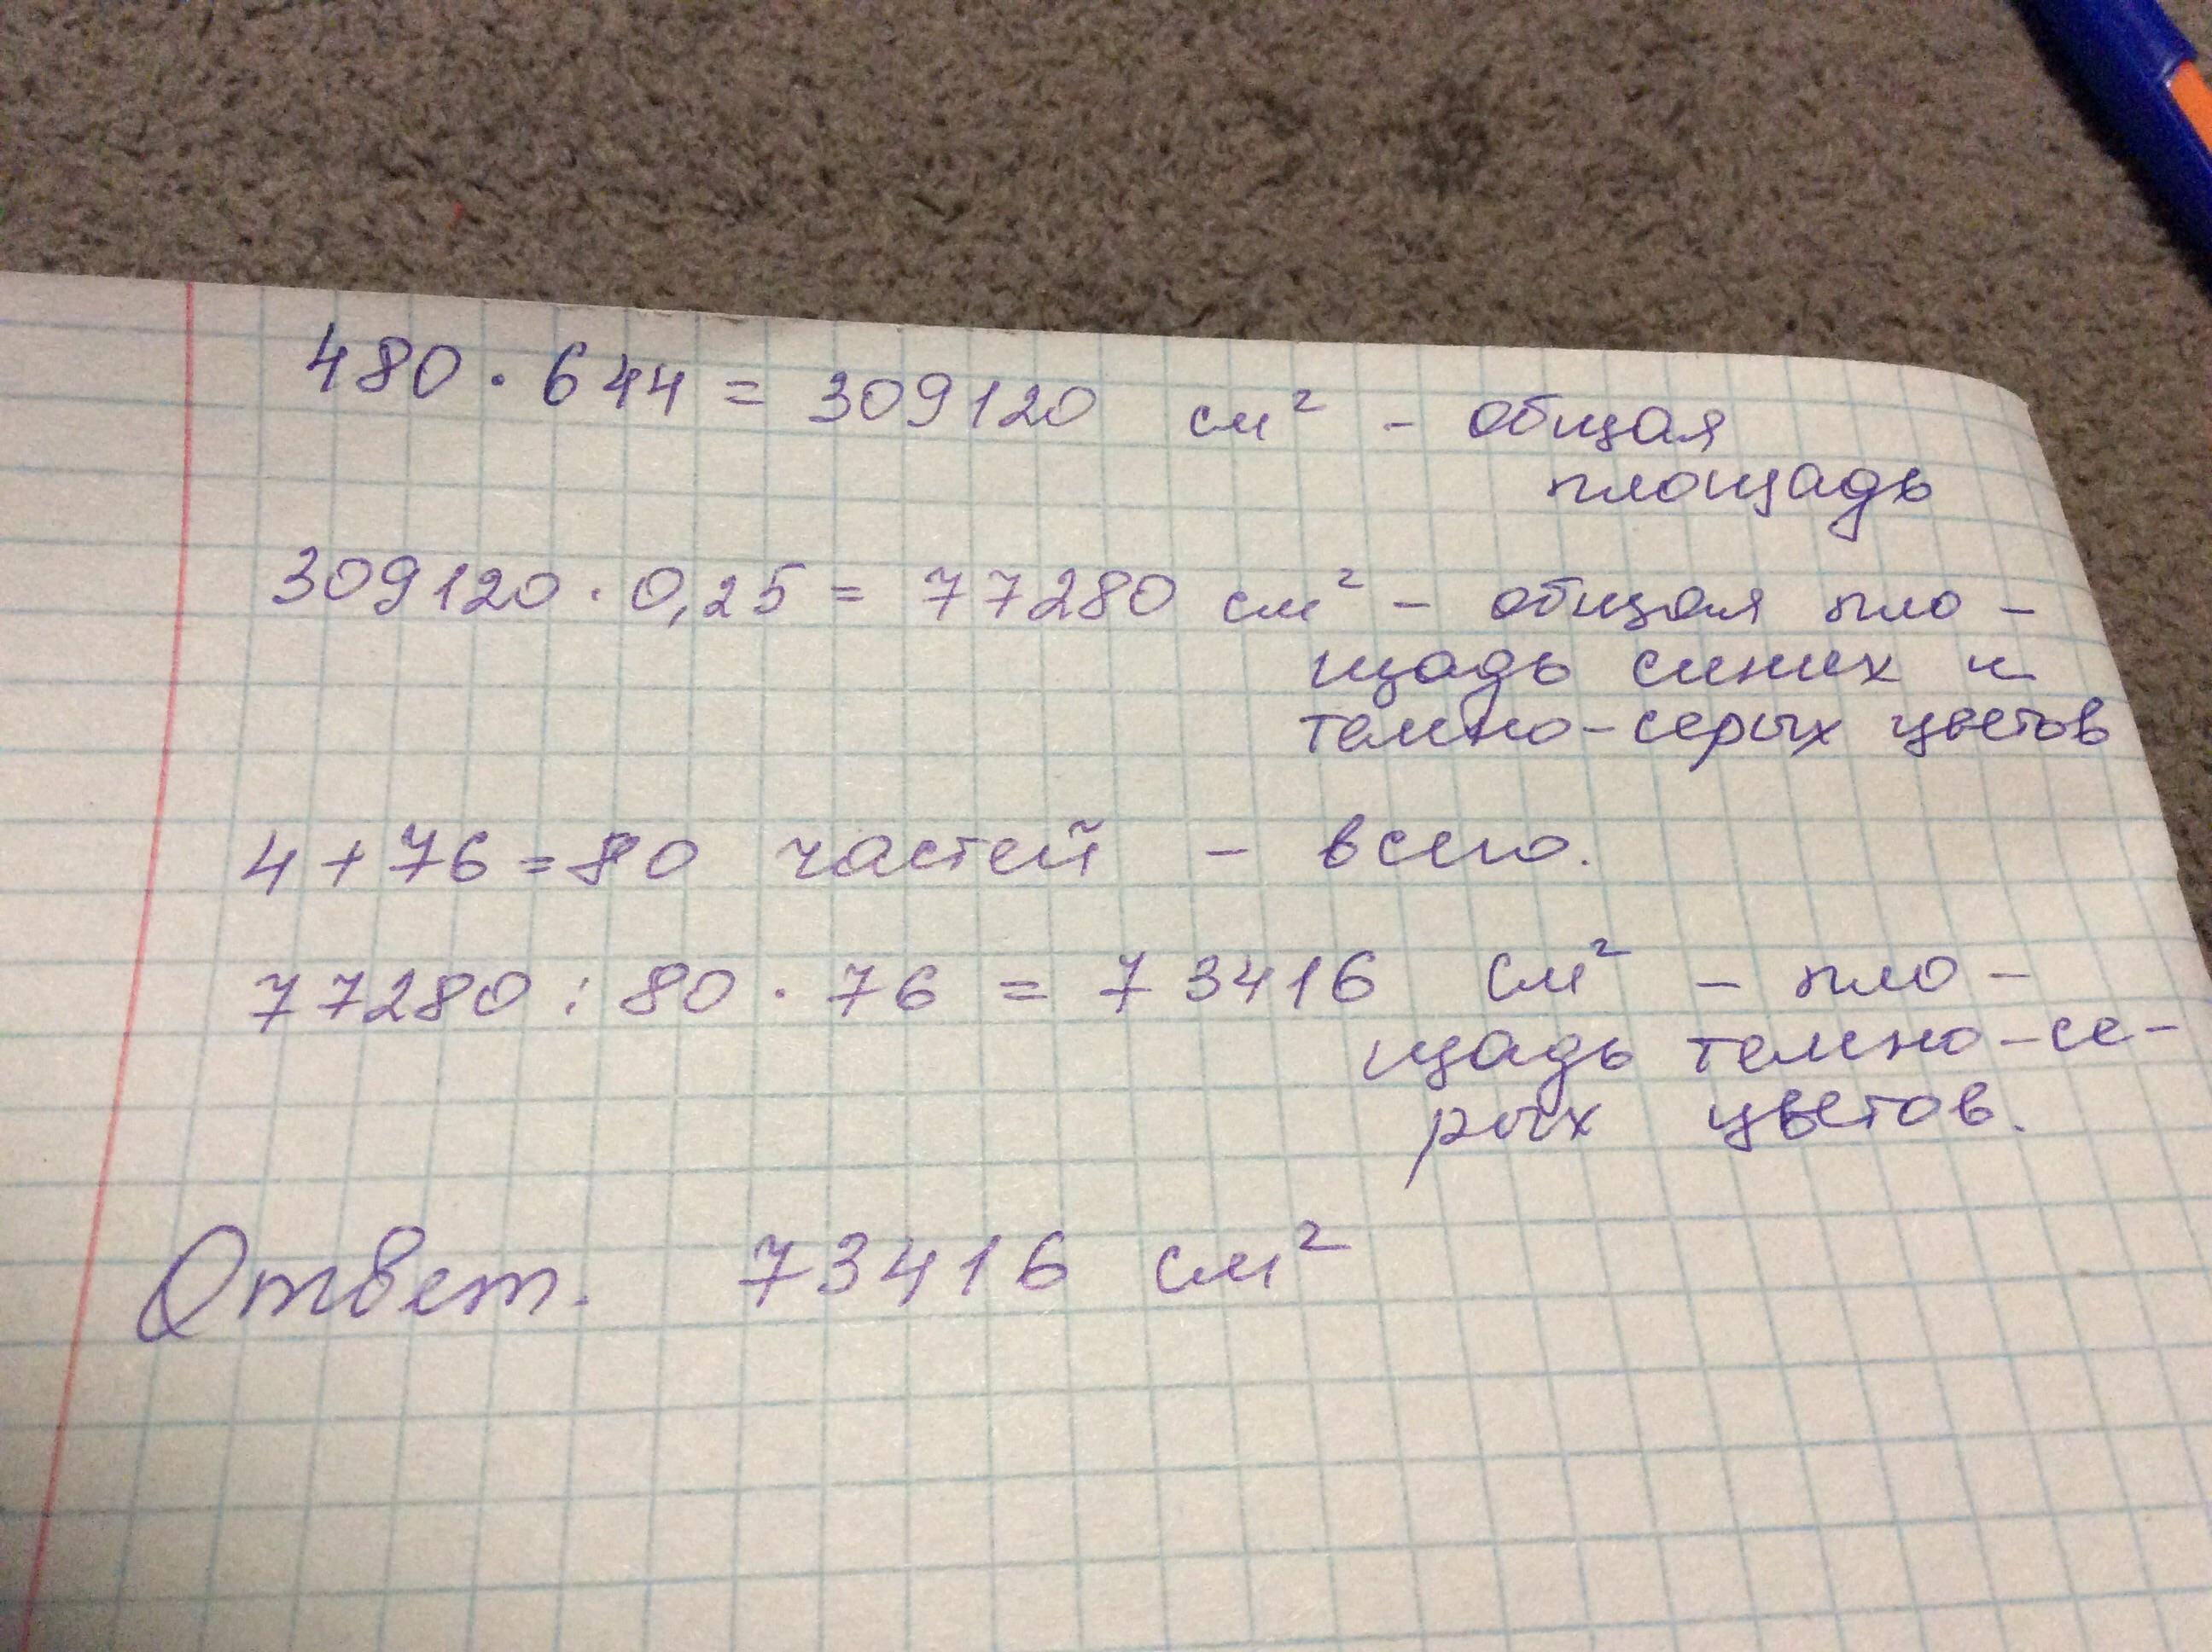 480 · 644 = 309120 см² - общая
площадь
309120 · 0,25 = 77280 см² - общая пло -
щадь синих и
темно-серых цветов
4 + 76 = 80 частей - всего.
77280 : 80 · 76 = 73416 см² - пло -
щадь темно-се-
рых цветов.
Ответ. 73416 см²